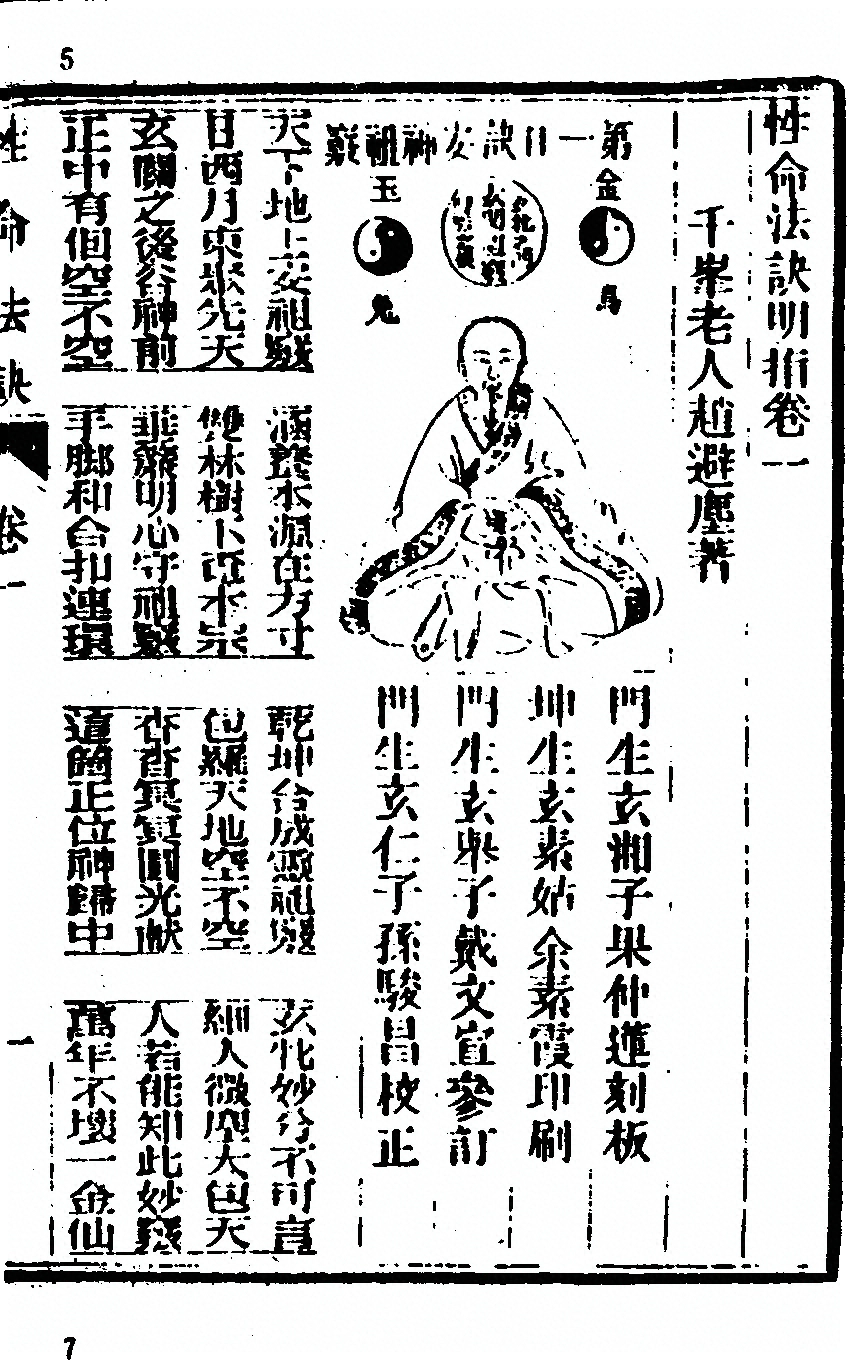 5
性命法訣明指卷一
千峯老人趙避塵著
第一口訣安神祖竅
金
烏
玉
兔
門生玄湘子果仲蓮刻板
坤生玄素姑余素霞印刷
門生玄舉子戴文宣參訂
門生玄仁子孫駿昌校正
天下地上安祖竅
日西月東聚先天
玄關之後谷神前
正中有個空不空
涵養本源在方寸
雙林樹下 本宗
垂簾明心守祖竅
手脚和合扣連環
乾坤合成靈祖竅
包羅天地空不空
杳杳冥冥圓光獻
這箇正位神歸中
玄牝妙分不可言
細入微塵大包天
人若能知此妙竅
萬年不壞一金仙
性命法訣
卷一
一
7